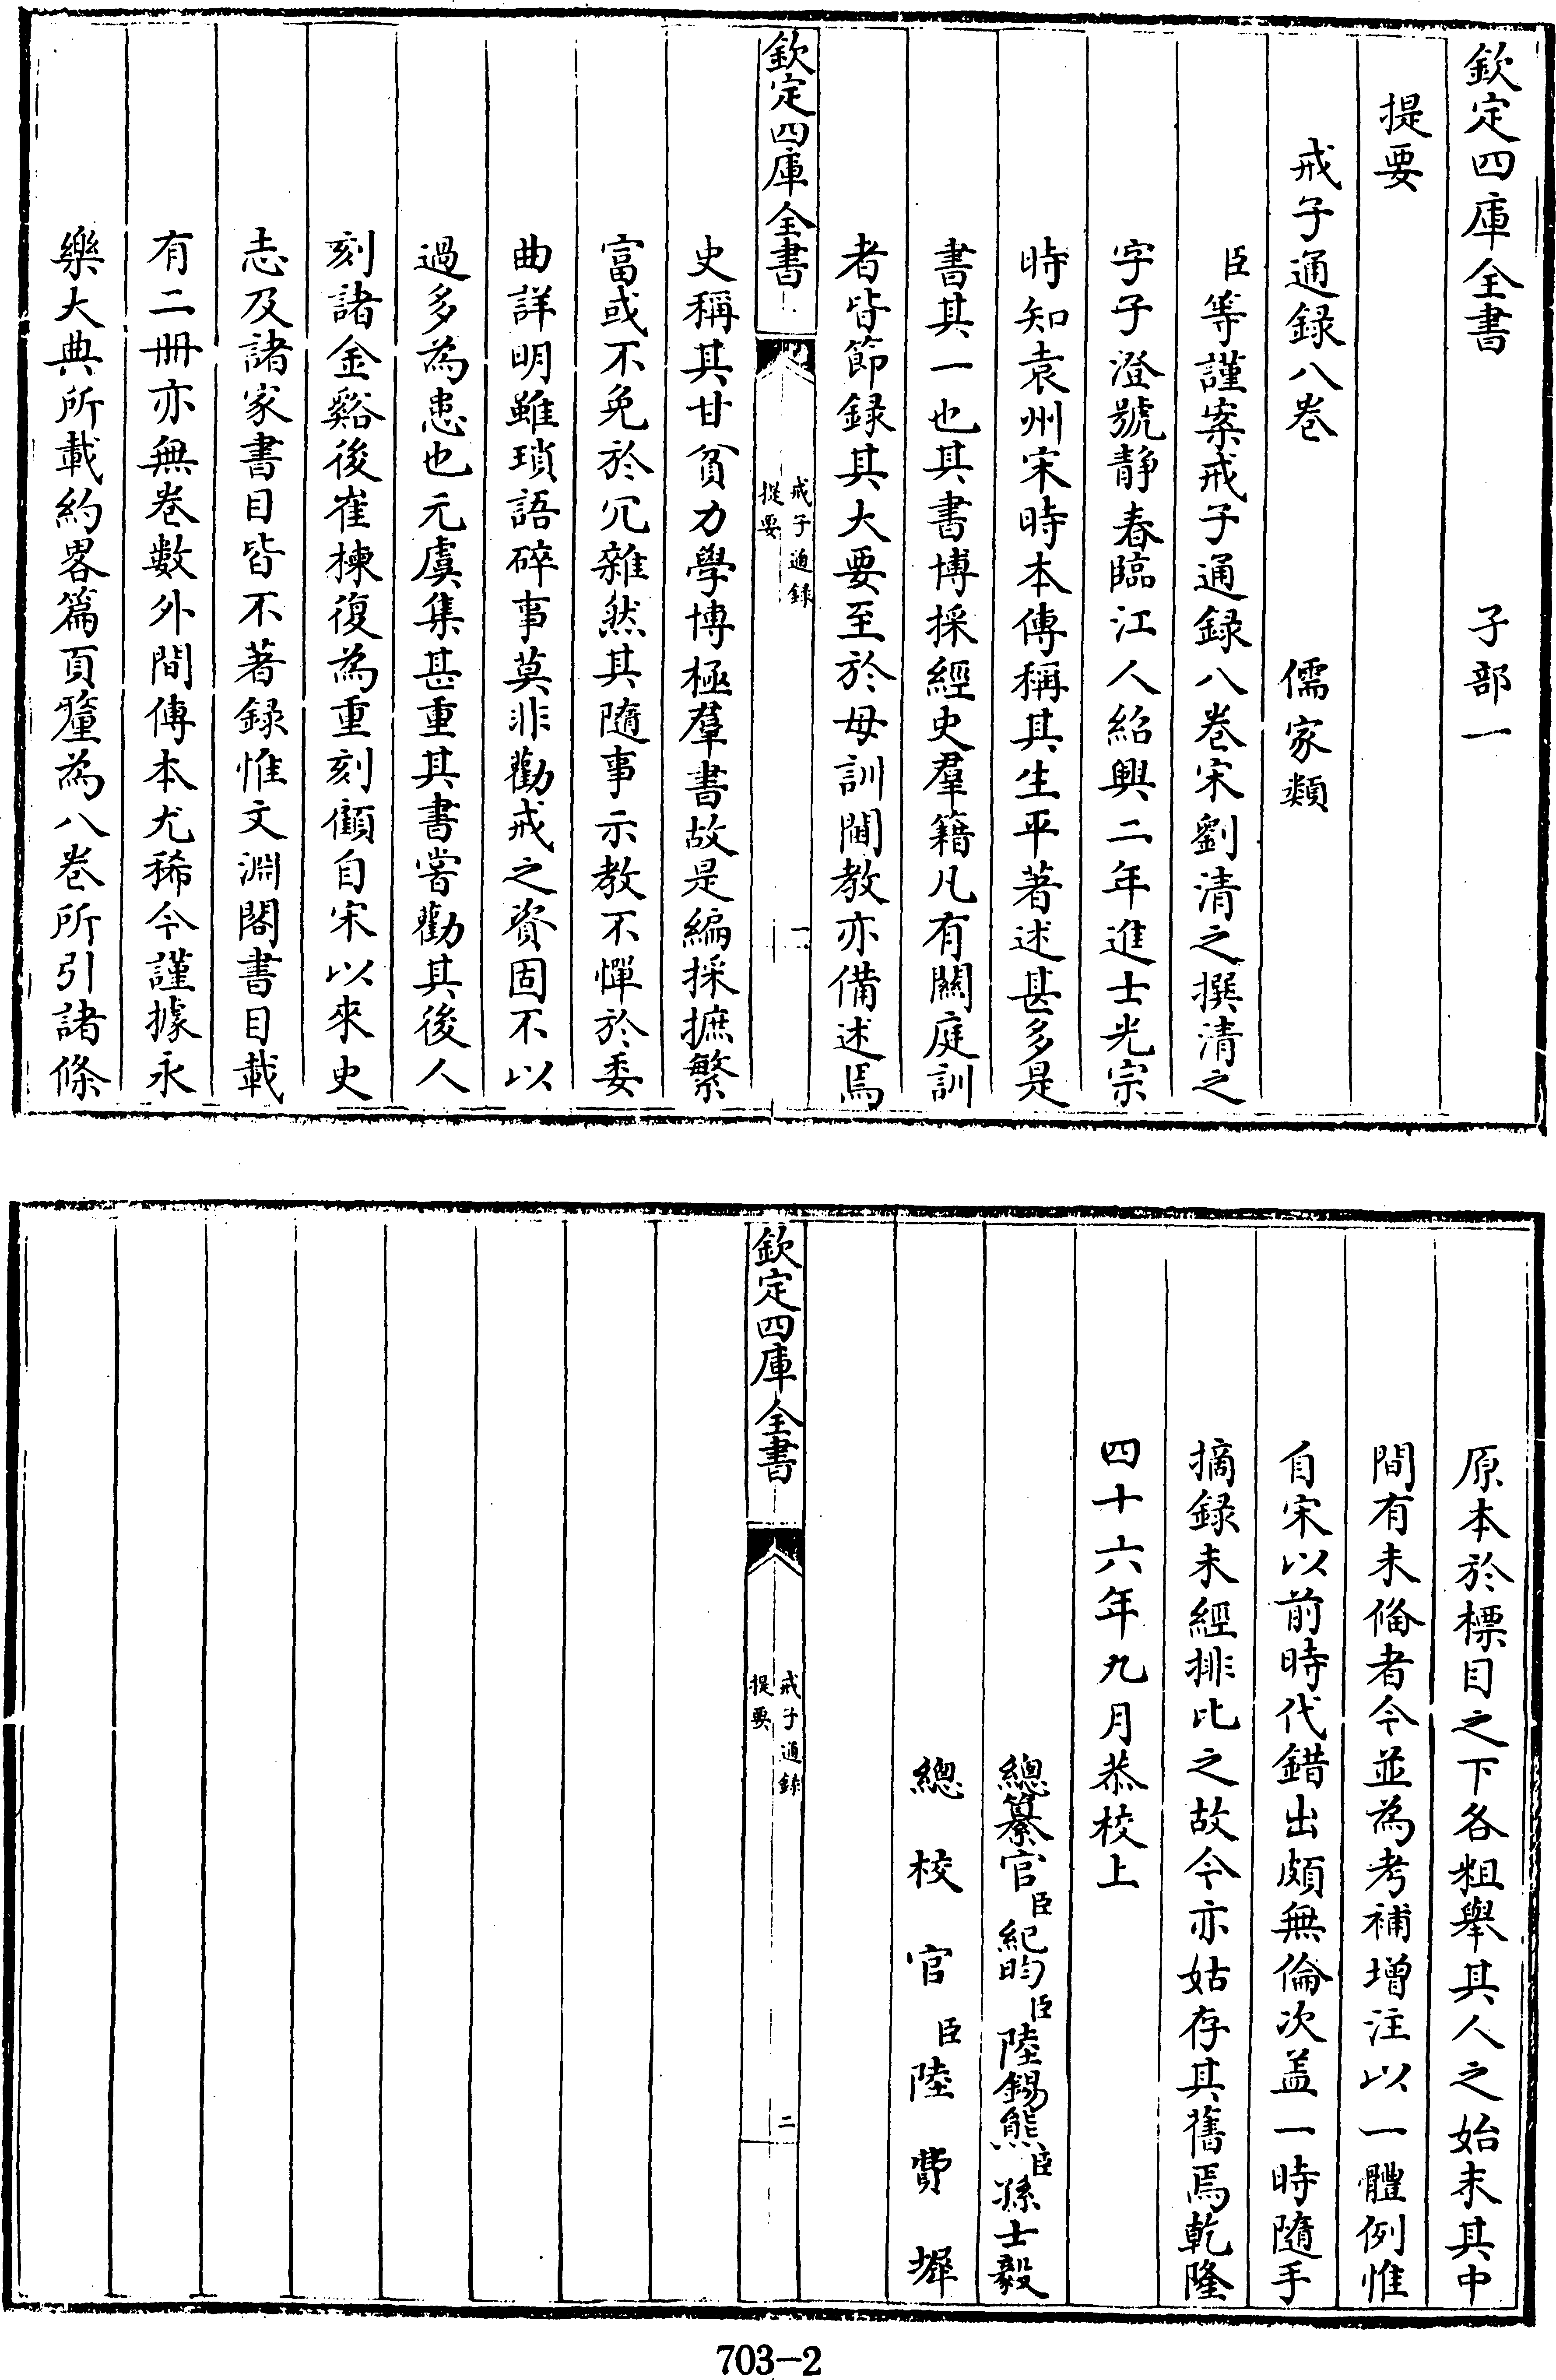 欽定四庫全書 子部一
提要
戒子通録八卷 儒家類
臣等謹案戒子通録八卷宋劉清之撰清之
字子澄號靜春臨江人紹興二年進士光宗
時知袁州宋時本傳稱其生平著述甚多是
書其一也其書博採經史羣籍凡有關庭訓
者皆節録其大要至於母訓閫教亦備述焉
欽定四庫全書 戒子通録 提要 一
史稱其甘貧力學博極羣書故是編採摭繁
富或不免於冗雜然其隨事示教不憚於委
曲詳明雖瑣語碎事莫非勸戒之資固不以
過多為患也元虞集甚重其書嘗勸其後人
刻諸金谿後崔棟復為重刻顧自宋以來史
志及諸家書目皆不著録惟文淵閣書目載
有二冊亦無卷數外間傳本尤稀今謹據永
樂大典所載約畧篇頁釐為八卷所引諸條
原本於標目之下各粗舉其人之始末其中
間有未俻者今並為考補增注以一體例惟
自宋以前時代錯出頗無倫次盖一時隨手
摘録未經排比之故今亦姑存其舊焉乾隆
四十六年九月恭校上
總纂官臣紀昀臣陸錫熊臣孫士毅
總校官臣陸費墀
欽定四庫全書 戒子通録 提要 二
703-2